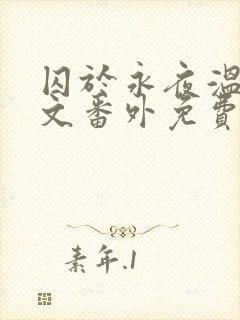 囚於永夜溫
文番外免費
素年.1